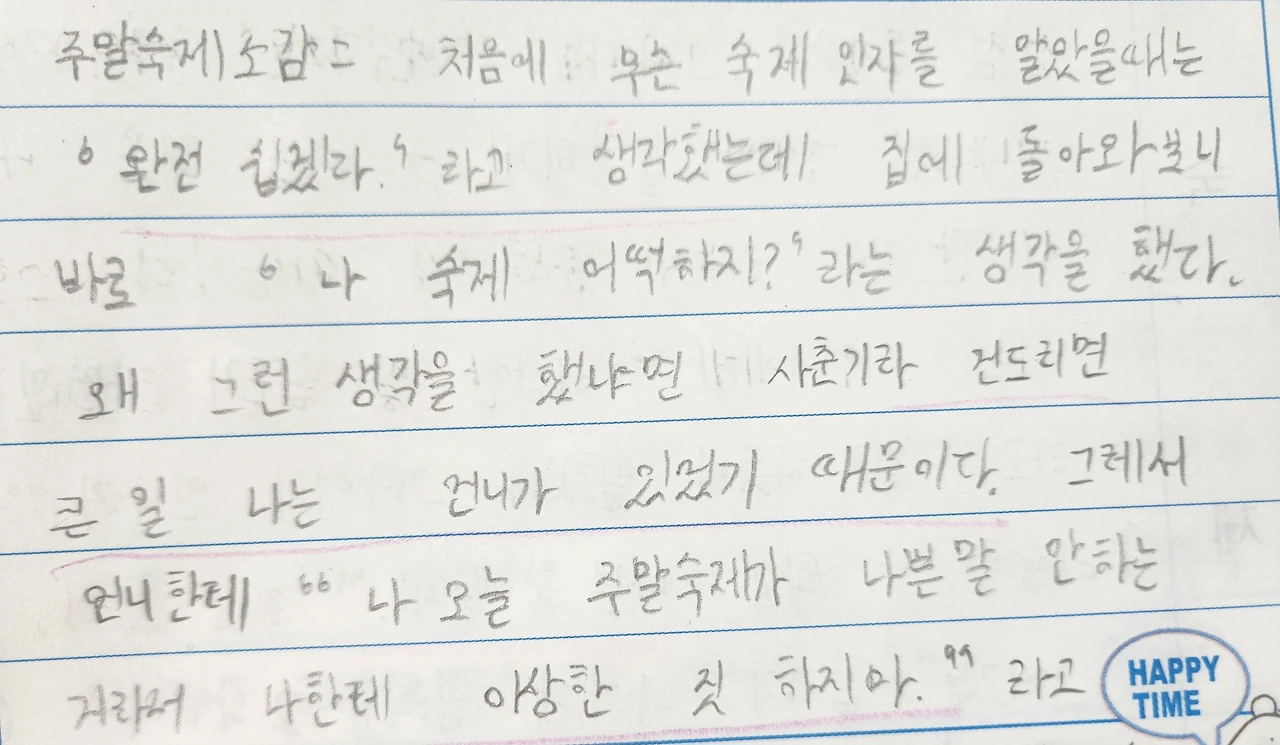 주말숙제소감은 처음에 무슨 숙제 인지를 알았을때는
'완전 쉽겠다.' 라고 생각했는데 집에 돌아와보니
바로 '나 숙제 어떡하지?' 라는 생각을 했다.
왜 그런 생각을 했냐면 사춘기라 건드리면
큰 일 나는 언니가 있었기 때문이다. 그레서
언니한테 "나 오늘 주말숙제가 나쁜말 안하는
거라서 나한테 이상한 짓 하지마." 라고
HAPPY
TIME